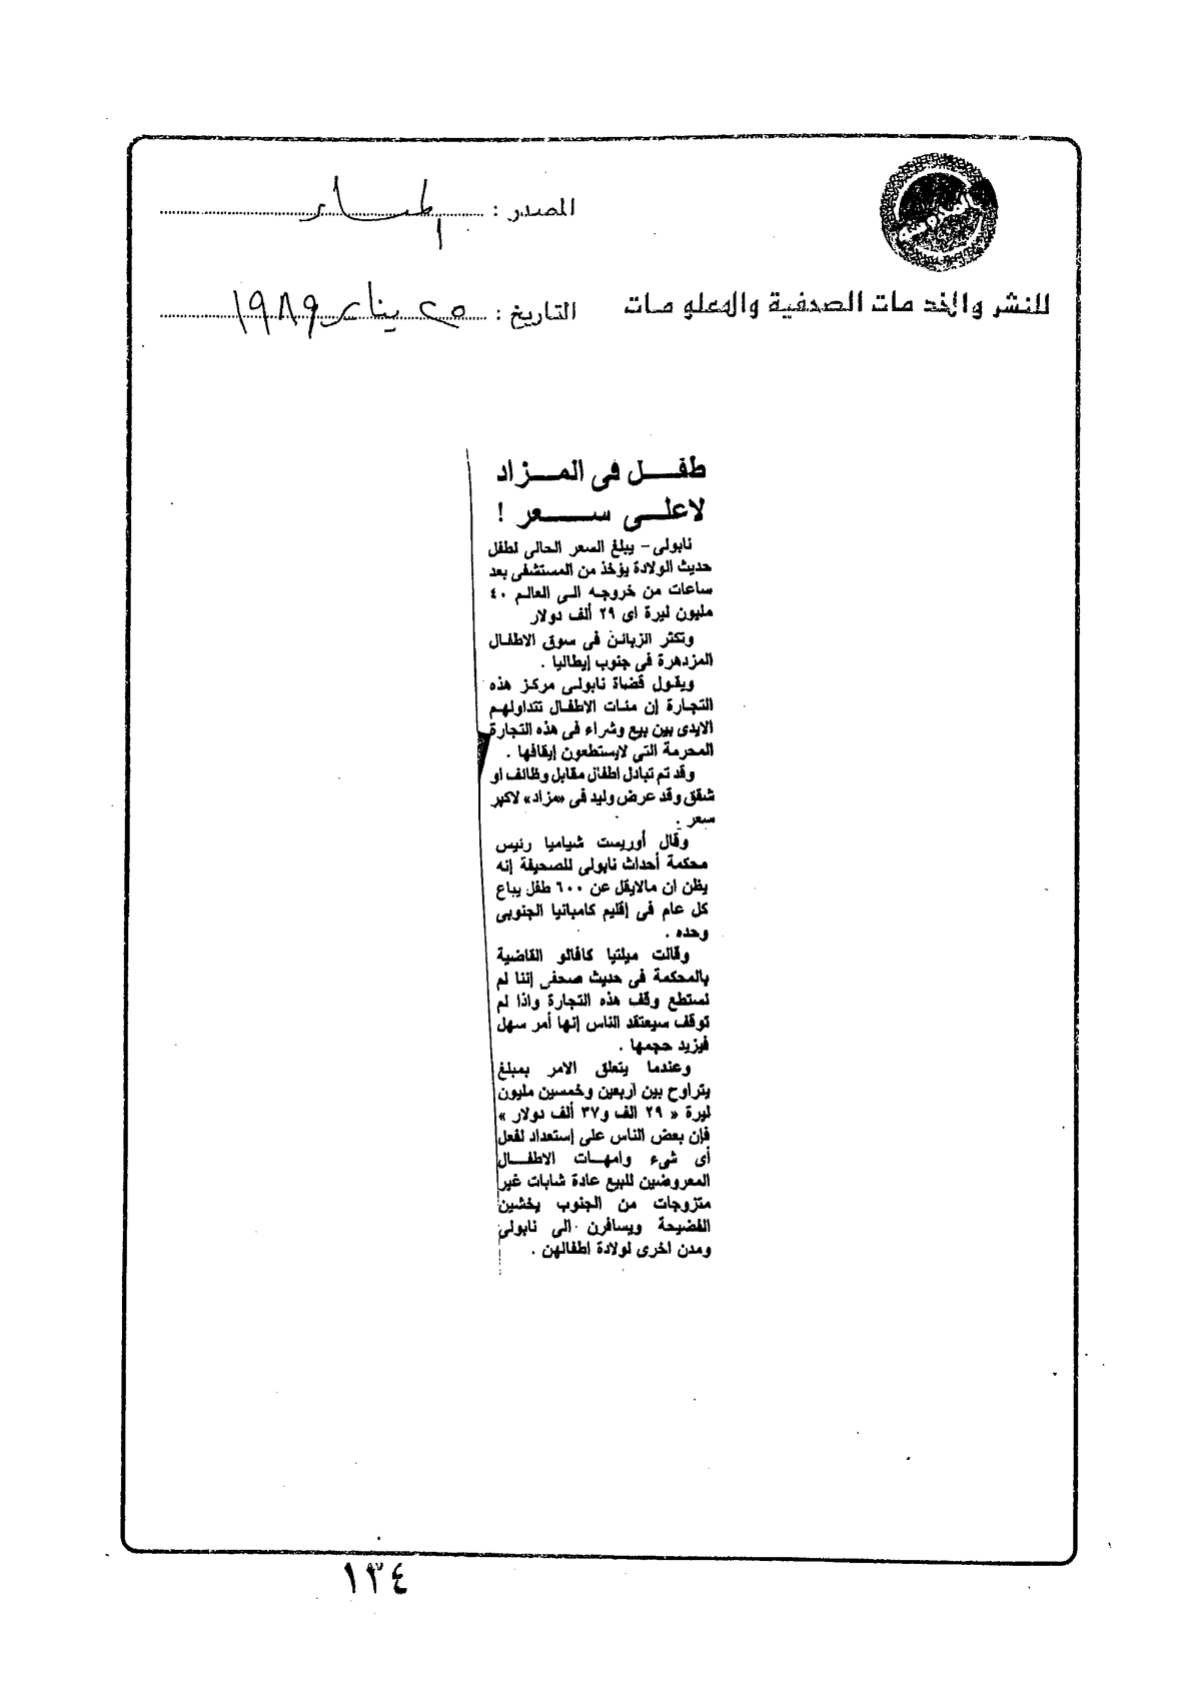 المصدر : المساء
للنشر والخدمات الصحفية والمعلومات
التاريخ : ٢٥ يناير ١٩٨٩
طفل فى المزاد
لاعلى سعر !
نابولى - يبلغ السعر الحالى لطفل
حديث الولادة يؤخذ من المستشفى بعد
ساعات من خروجه الى العالم ٤٠
مليون ليرة اى ٢٩ ألف دولار
وتكثر الزبائن فى سوق الاطفال
المزدهرة فى جنوب إيطاليا .
ويقول قضاة نابولى مركز هذه
التجارة إن مئات الاطفال تتداولهم
الايدى بين بيع وشراء فى هذه التجارة
المحرمة التى لايستطعون إيقافها .
وقد تم تبادل اطفال مقابل وظائف او
شقق وقد عرض وليد فى «مزاد» لاكبر
سعر .
وقال أوريست شياميا رئيس
محكمة أحداث نابولى للصحيفة إنه
يظن ان مالايقل عن ٦٠٠ طفل يباع
كل عام فى إقليم كامبانيا الجنوبى
وحده .
وقالت ميلتيا كافالو القاضية
بالمحكمة فى حديث صحفى إننا لم
نستطع وقف هذه التجارة واذا لم
توقف سيعتقد الناس إنها أمر سهل
فيزيد حجمها .
وعندما يتعلق الامر بمبلغ
يتراوح بين أربعين وخمسين مليون
ليرة « ٢٩ الف و٣٧ ألف دولار »
فإن بعض الناس على إستعداد لفعل
أى شىء وامهات الاطفال
المعروضين للبيع عادة شابات غير
متزوجات من الجنوب يخشين
الفضيحة ويسافرن الى نابولى
ومدن اخرى لولادة اطفالهن .
١٣٤